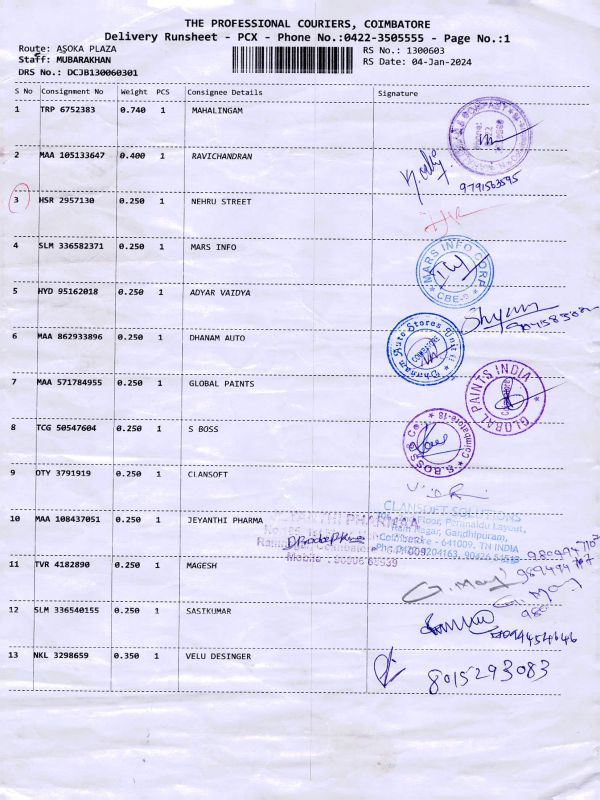 THE PROFESSIONAL COURIERS, COIMBATORE
Delivery Runsheet - PCX - Phone No.:0422-3505555 - Page No.:1
Route: ASOKA PLAZA RS No.: 1300603
Staff: MUBARAKHAN RS Date: 04-Jan-2024
DRS No.: DCJB130060301
S No Consignment No Weight PCS Consignee Details Signature
1 TRP 6752383 0.740 1 MAHALINGAM
2 MAA 105133647 0.400 1 RAVICHANDRAN
9791563595
3 HSR 2957130 0.250 1 NEHRU STREET
4 SLM 336582371 0.250 1 MARS INFO
MARS INFO CORP
CBE-9
5 HYD 95162018 0.250 1 ADYAR VAIDYA
Shyam
6 MAA 862933896 0.250 1 DHANAM AUTO
Dhanam Auto Stores Unit II
COIMBATORE
7 MAA 571784955 0.250 1 GLOBAL PAINTS
GLOBAL PAINTS INDIA
8 TCG 50547604 0.250 1 S BOSS
S.BOSS & Co. Coimbatore-18
9 OTY 3791919 0.250 1 CLANSOFT
CLANSOFT SOLUTIONS
Floor, Perunaidu Layout,
Nagar, Gandhipuram,
Coimbatore - 641009, TN INDIA
10 MAA 108437051 0.250 1 JEYANTHI PHARMA
PHARMAA
Mobile :
11 TVR 4182890 0.250 1 MAGESH
12 SLM 336540155 0.250 1 SASIKUMAR
13 NKL 3298659 0.350 1 VELU DESINGER
8015293083